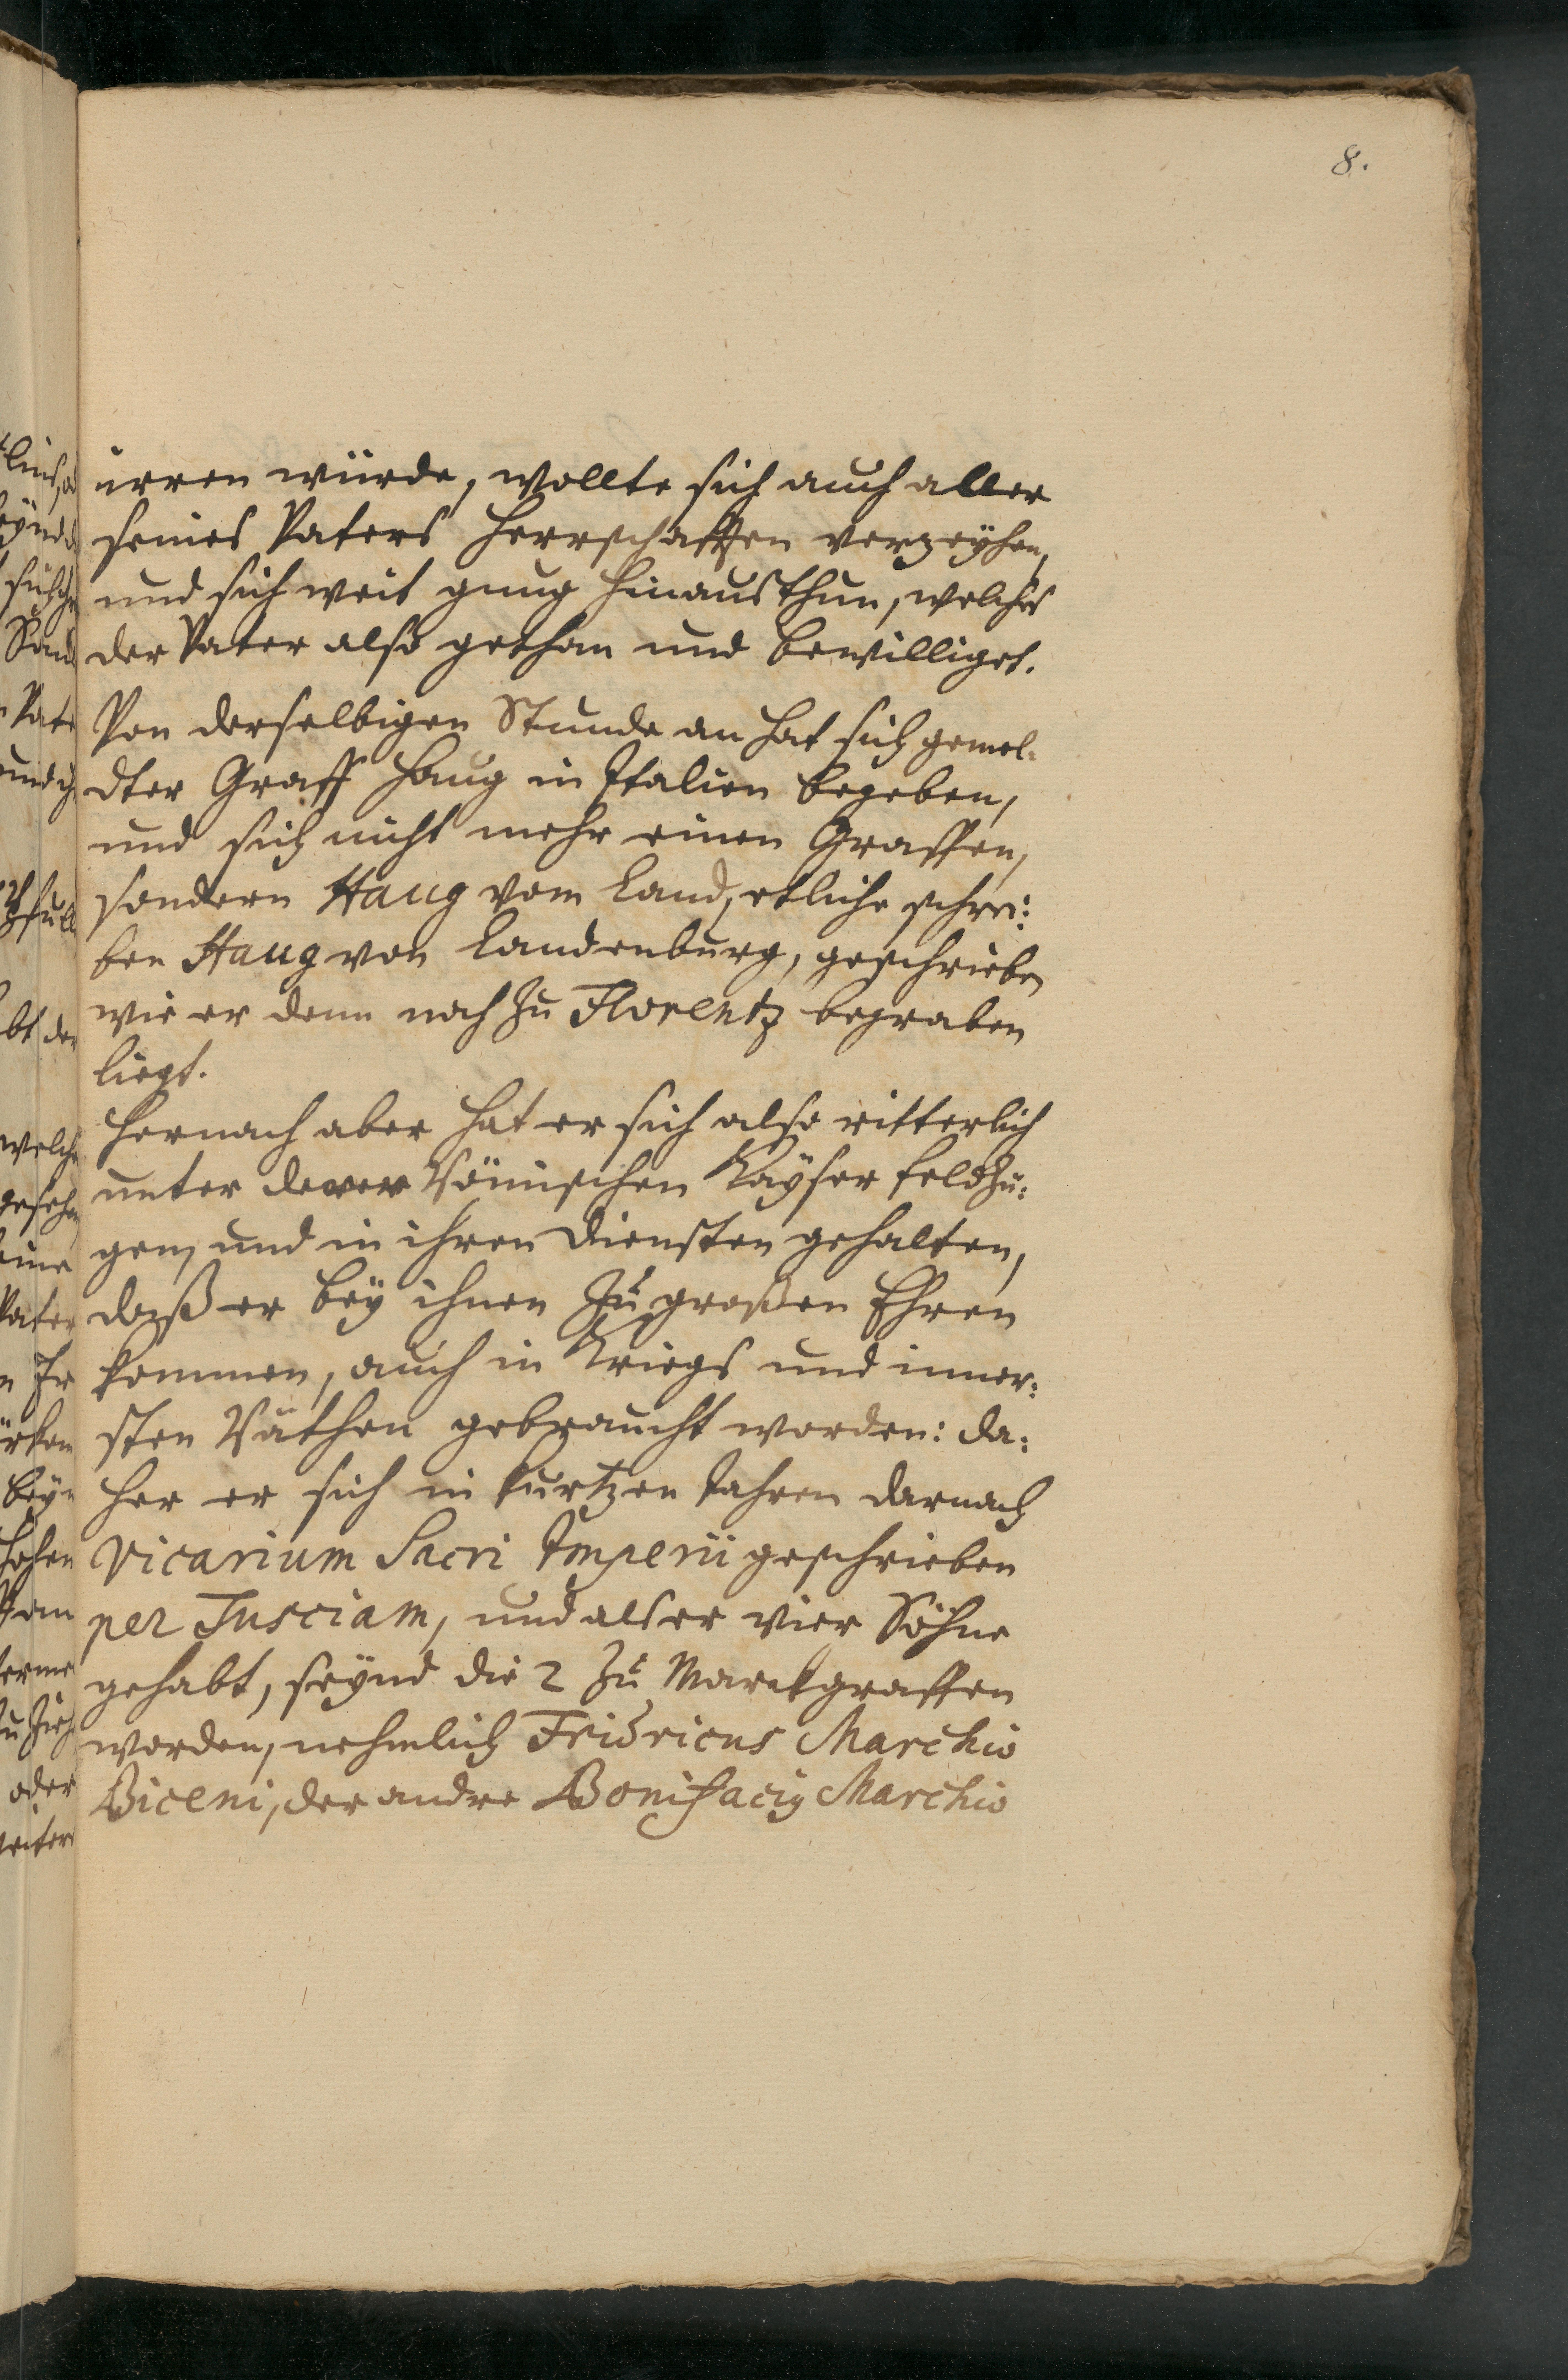 8.
irren würde, wollte sich auch aller
seines Vaters Herrschafften verzeÿhen,
und sich weit gnug hinausthun, welches
der Vater also gethan und bewilliget.
Von derselbigen Stunde an hat sich gemel-
dter Graff Haug in Italien begeben,
und sich nicht mehr einen Graffen,
sondern Haug vom Land, etliche schrei:
ben Haug von Landenburg, geschrieben
wie er denn noch zu Florentz begraben
liegt.
Hernach aber hat er sich also ritterlich
unter derer Römischen Kaÿser Feldzu:
gen, und in ihren Diensten gehalten,
daß er beÿ ihnen zu großen Ehren
kommen, auch in Kriegs und inner:
sten Räthen gebraucht worden: da:
her er sich in kurtzen Jahren darnach
Vicarium Sacri Imperii geschrieben
per Tusciam, und als er vier Söhne
gehabt, seÿnd die 2 zu Marckgraffen
worden, nehmlich Fridricus Marchio
Biceni, der andre Bonifaciy Marchio